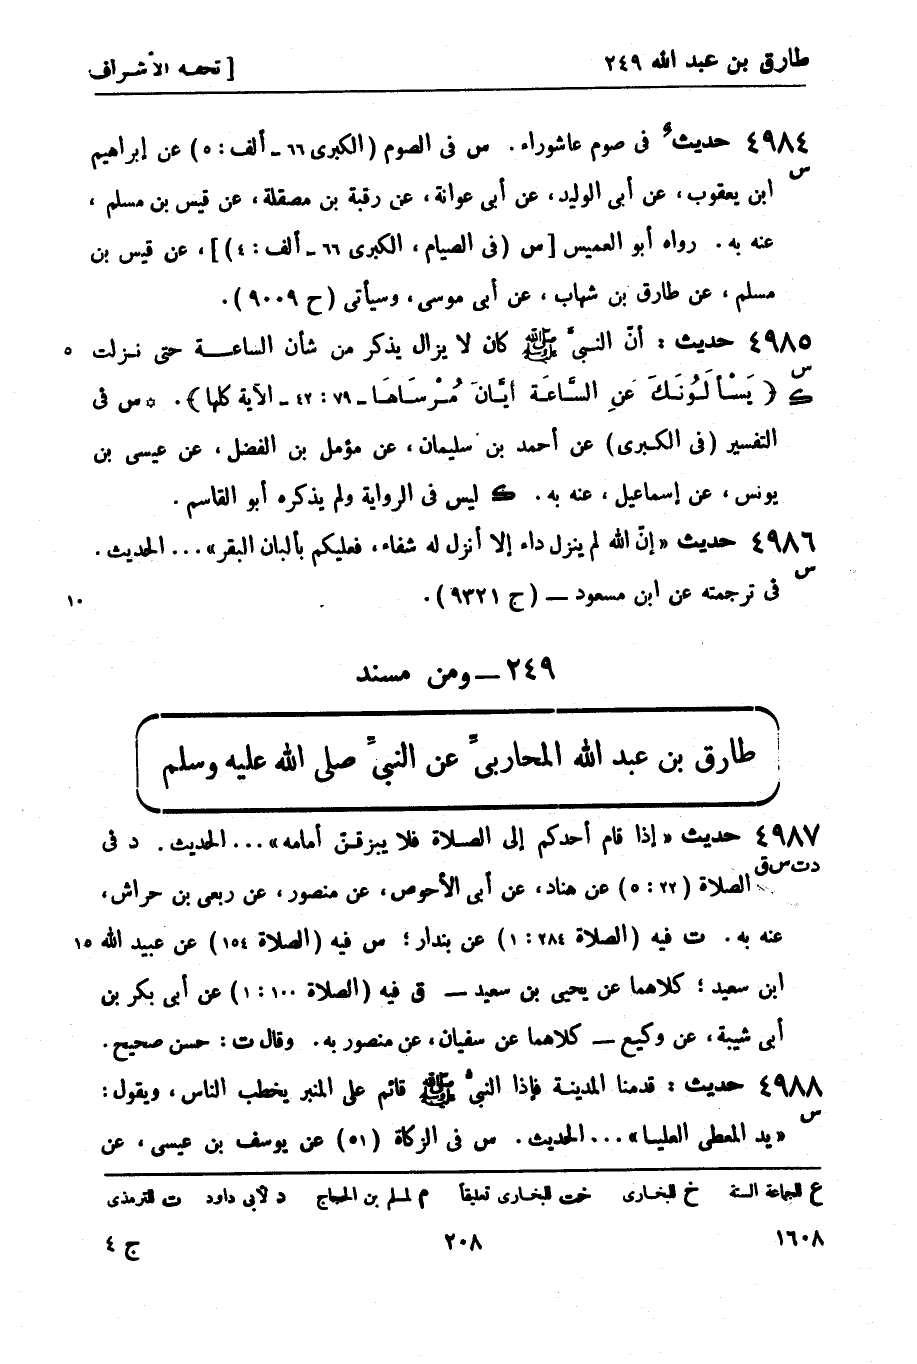 طارق بن عبد الله ٢٤٩ [ تحفة الأشراف
٤٩٨٤ حديث في صوم عاشوراء . س في الصوم (الكبرى ٦٦ ـ ألف : ٥) عن إبراهيم
س
ابن يعقوب ، عن أبي الوليد، عن أبي عوانة، عن رقبة بن مصقلة، عن قيس بن مسلم ،
عنه به . رواه أبو العميس [س (في الصيام ، الكبرى ٦٦ ـ ألف : ٤)]، عن قيس بن
مسلم ، عن طارق بن شهاب ، عن أبي موسى، وسيأتي (ح ٩٠٠٩).
٤٩٨٥ حديث : أنّ النبيّ ﷺ كان لا يزال يذكر من شأن الساعة حتى نزلت ٥
س
ك ﴿ يَسْأَلُونَكَ عَنِ السَّاعَةِ أَيَّانَ مُرْسَاهَا ـ ٧٩ : ٤٢ ـ الآية كلها﴾ . * س في
التفسير (في الكبرى) عن أحمد بن سليمان، عن مؤمل بن الفضل، عن عيسى بن
يونس، عن إسماعيل، عنه به . ك ليس في الرواية ولم يذكره أبو القاسم .
٤٩٨٦ حديث «إنّ الله لم ينزل داء إلا أنزل له شفاء، فعليكم بألبان البقر» ... الحديث .
س
في ترجمته عن ابن مسعود — (ح ٩٣٢١). ١٠
٢٤٩ — ومن مسند
طارق بن عبد الله المحاربيّ عن النبيّ صلى الله عليه وسلم
٤٩٨٧ حديث «إذا قام أحدكم إلى الصلاة فلا يبزقنّ أمامه» ... الحديث . د في
د ت س ق
الصلاة (٢٢ : ٥) عن هناد، عن أبي الأحوص، عن منصور، عن ربعي بن حراش،
عنه به . ت فيه (الصلاة ٢٨٤ : ١) عن بندار؛ س فيه (الصلاة ١٥٤) عن عبيد الله ١٥
ابن سعيد ؛ كلاهما عن يحيى بن سعيد — ق فيه (الصلاة ١٠٠ : ١) عن أبي بكر بن
أبي شيبة، عن وكيع — كلاهما عن سفيان، عن منصور به . وقال ت : حسن صحيح .
٤٩٨٨ حديث : قدمنا المدينة فإذا النبيّ ﷺ قائم على المنبر يخطب الناس، ويقول :
س
«يد المعطي العليا» ... الحديث . س في الزكاة (٥١) عن يوسف بن عيسى، عن
ع للجماعة الستة خ للبخاري خت للبخاري تعليقاً م لمسلم بن الحجاج د لأبي داود ت للترمذي
١٦٠٨ ٢٠٨ ج ٤